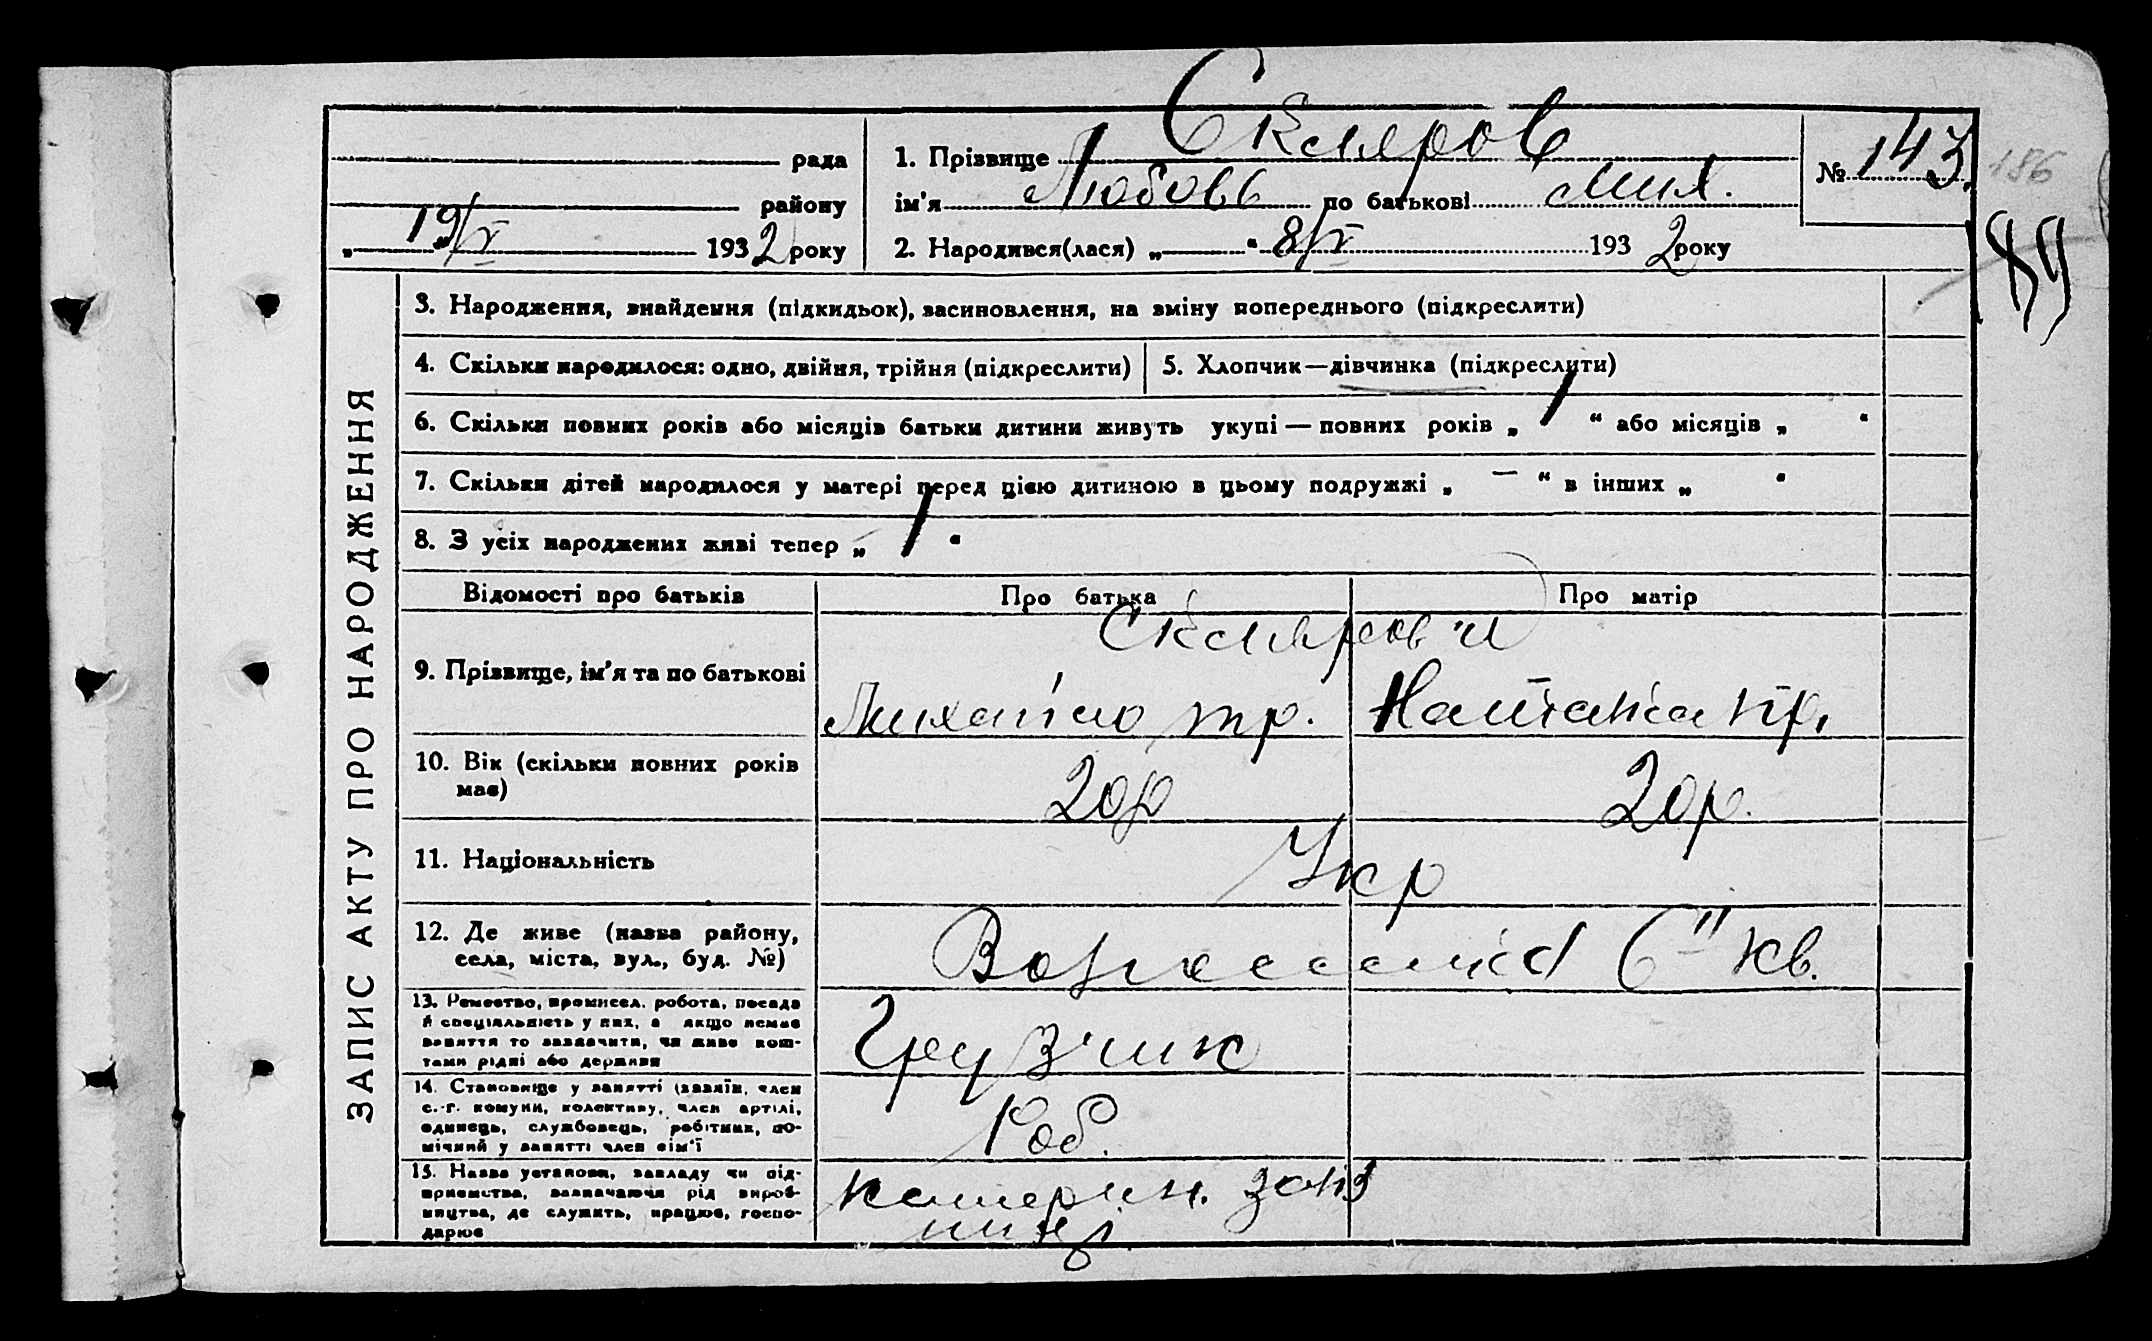 рада
району
19/V 1932 року
1. Прізвище Скляров
ім'я Любовь по батькові Мих.
2. Народився(лася) „ “ 8/V 1932 року
№ 143
186
189
ЗАПИС АКТУ ПРО НАРОДЖЕННЯ
3. Народження, знайдення (підкидьок), засиновлення, на зміну попереднього (підкреслити)
4. Скільки народилося: одно, двійня, трійня (підкреслити)
5. Хлопчик—дівчинка (підкреслити)
6. Скільки повних років або місяців батьки дитини живуть укупі — повних років „ 1 “ або місяців „ “
7. Скільки дітей народилося у матері перед цією дитиною в цьому подружжі „ — “ в інших „ “
8. З усіх народжених живі тепер „ 1 “
Відомості про батьків
Про батька
Про матір
9. Прізвище, ім'я та по батькові
Склярови
Михайло тр.
Наталка
10. Вік (скільки повних років
має)
20р
20р.
11. Національність
Укр
12. Де живе (назва району,
села, міста, вул., буд. №)
6 кв.
13. Ремество, промисел, робота, посада
й спеціяльність у них, а якщо немає
заняття то зазначити, чи живе кош-
тами рідні або держави
Грузчик
14. Становище у занятті (хазяїн, член
с.-г. комуни, колективу, член артілі,
одинець, службовець, робітник, по-
мічний у занятті член сім'ї
Роб.
15. Назва установи, закладу чи під-
приємства, зазначаючи рід вироб-
ництва, де служить, працює, госпо-
дарює
катерин. заліз
ниці